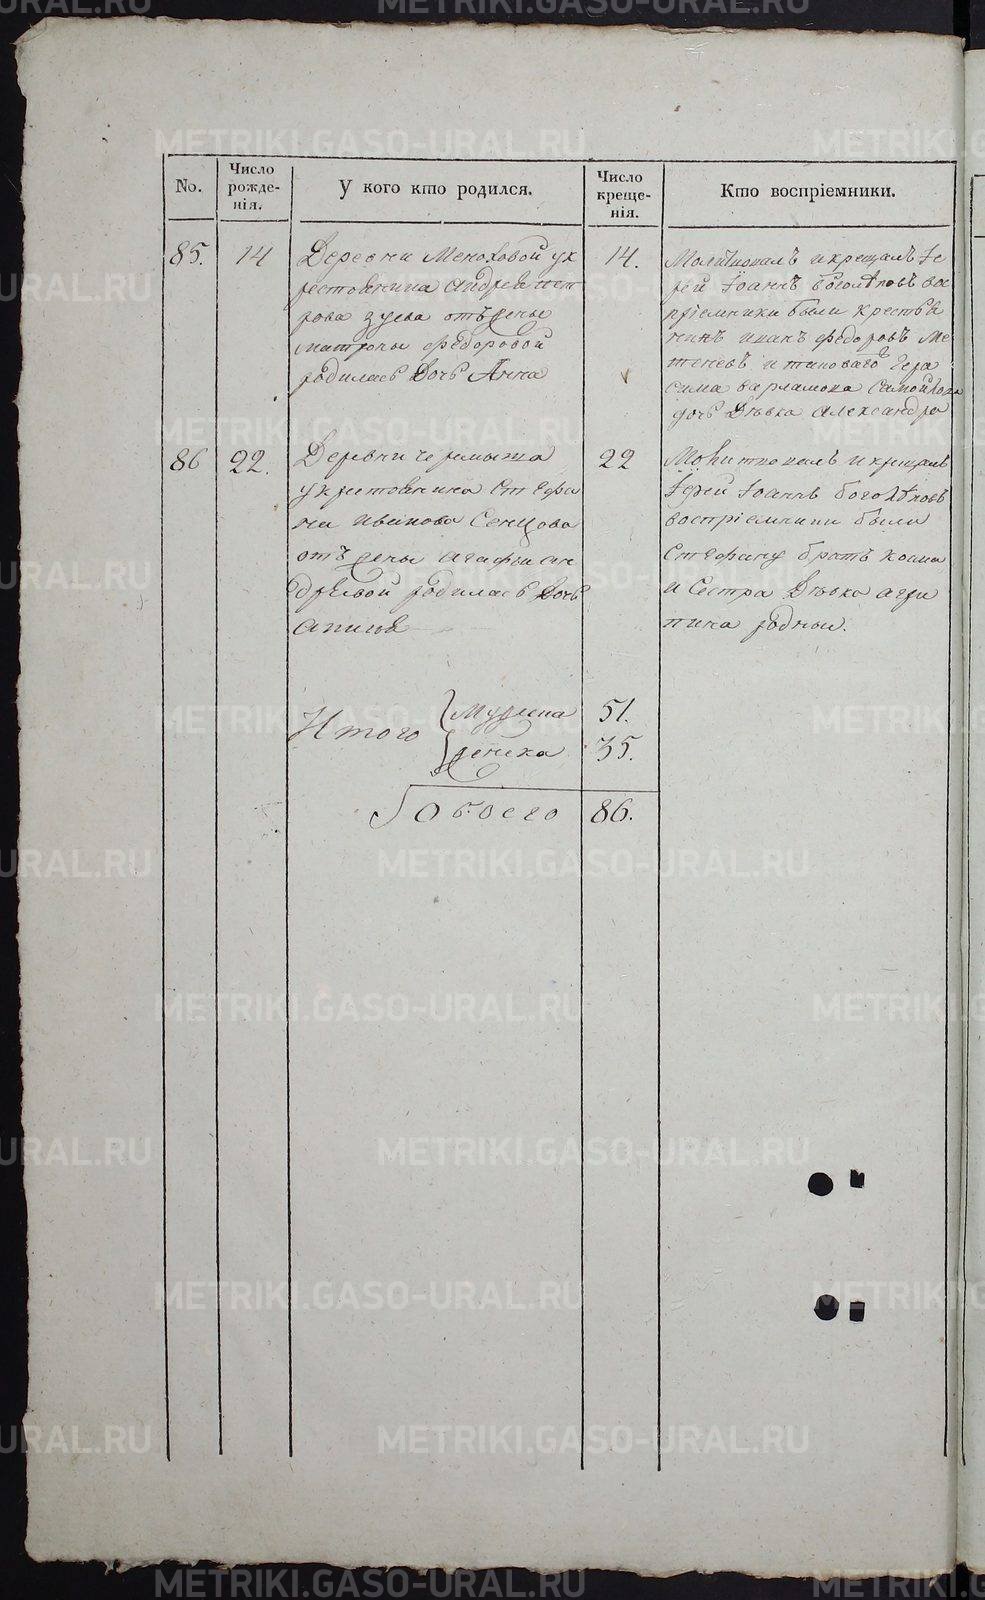 No.
Число рожде-нія.
У кого кто родился.
Число креще-нія.
Кто воспріемники.
85.
14
Деревни Меноховой у к
рестьянина Андрея пет
рова зуева отъ жены
матроны федоровой
родилась Дочь Анна
14.
Молитвовалъ и крещалъ Іе
рей Іоаннъ боголѣповъ вос
пріемники были крестья
нинъ иванъ федоровъ Ме
теневъ и таковаго Гера
сима варламова
дочь Дѣвка Александра
86
22.
Деревни черемыша
у крестьянина Стефа
на иванова Сенцова
отъ жены агафьи ан
дреевой родилась Дочь
22
Молитвовалъ и крещалъ
Іерей Іоаннъ боголѣповъ
воспріемники были
Стефану братъ косма
и Сестра Дѣвка агри
пина родныи.
Итого
мужеска 51.
женска 35.
Обоего 86.
METRIKI.GASO-URAL.RU